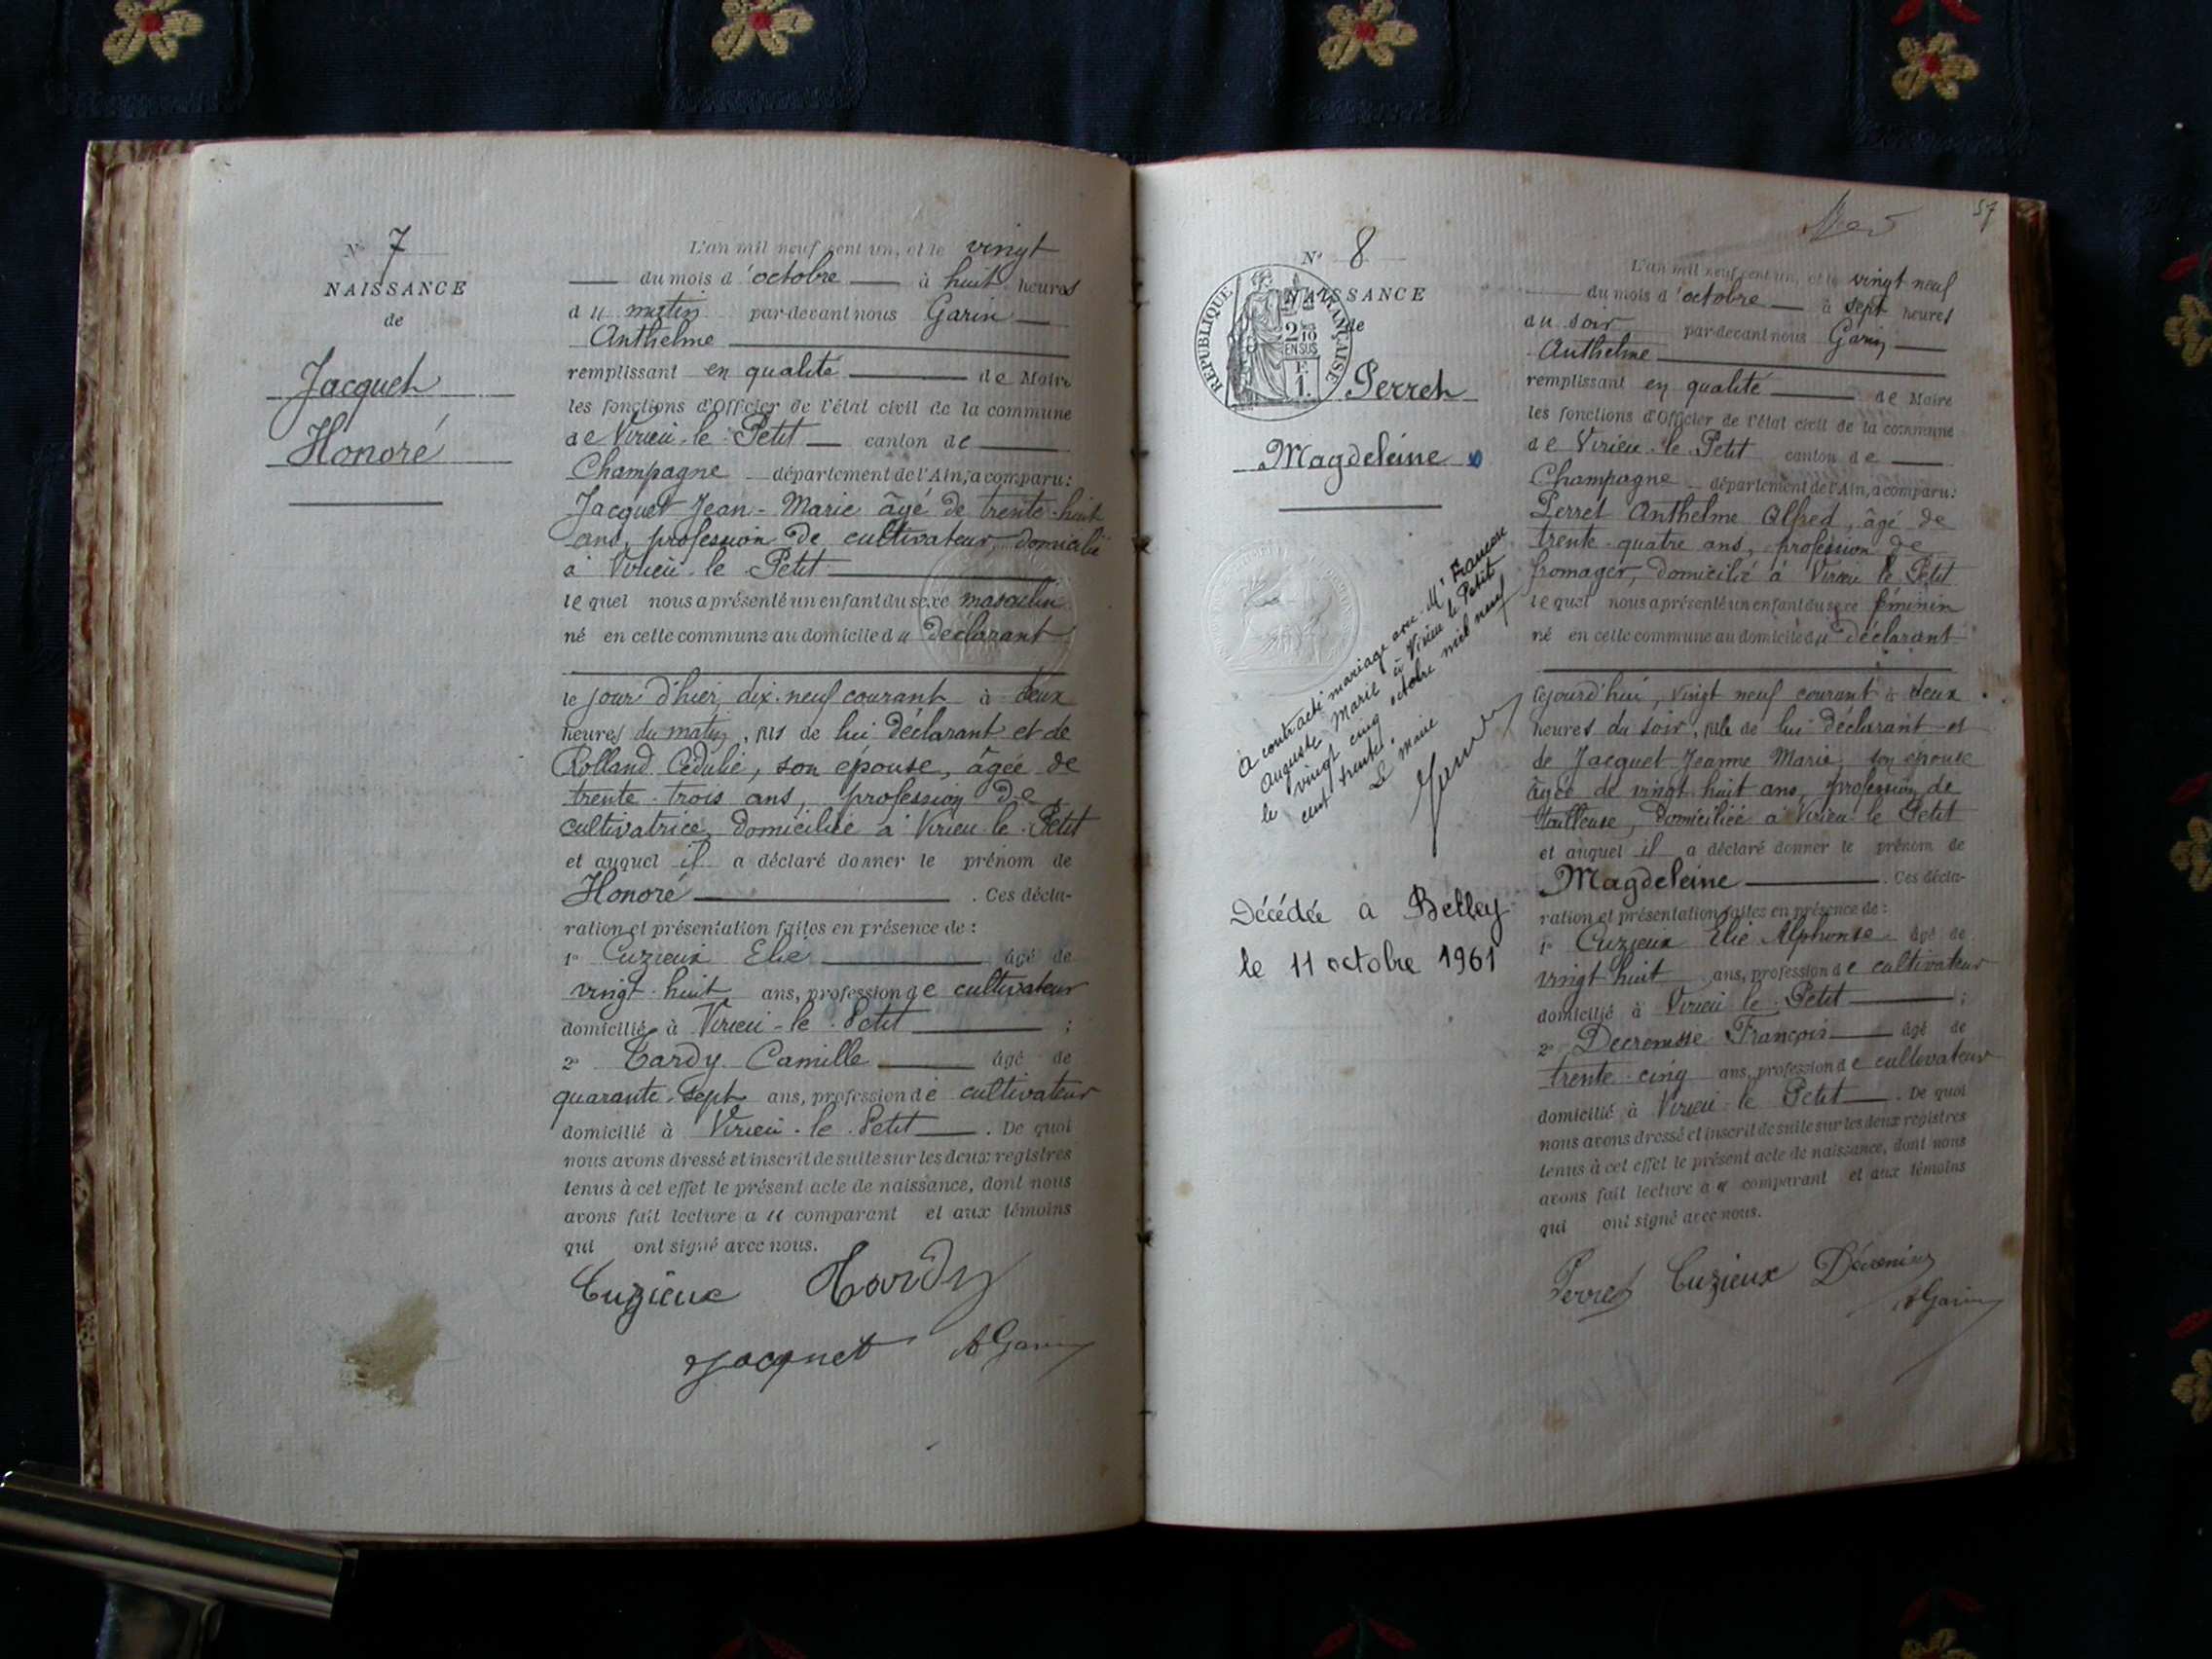 N° 7
NAISSANCE
de
Jacquet
Honoré
L'an mil neuf cent un, et le vingt
du mois d'octobre à huit heures
du matin par-devant nous Garin
Anthelme
remplissant en qualité de Maire
les fonctions d'Officier de l'état civil de la commune
de Virieu-le-Petit canton de
Champagne département de l'Ain, a comparu:
Jacquet Jean-Marie âgé de trente-huit
ans, profession de cultivateur, domicilié
à Virieu-le-Petit
lequel nous a présenté un enfant du sexe masculin
né en cette commune au domicile du déclarant
le jour d'hier, dix-neuf courant à deux
heures du matin, fils de lui déclarant et de
Rolland Cédulie, son épouse, âgée de
trente-trois ans, profession de
cultivatrice, domiciliée à Virieu-le-Petit
et auquel il a déclaré donner le prénom de
Honoré. Ces décla-
ration et présentation faites en présence de:
1° Cuzieux Elie âgé de
vingt-huit ans, profession de cultivateur
domicilié à Virieu-le-Petit;
2° Tardy Camille âgé de
quarante-sept ans, profession de cultivateur
domicilié à Virieu-le-Petit. De quoi
nous avons dressé et inscrit de suite sur les deux registres
tenus à cet effet le présent acte de naissance, dont nous
avons fait lecture au comparant et aux témoins
qui ont signé avec nous.
Cuzieux Tardy
Jacquet A Garin
57
N° 8
NAISSANCE
de
RÉPUBLIQUE FRANÇAISE
2/10
EN SUS
F
1.
Perret
Magdeleine
A contracté mariage avec Mr Francon
Auguste Marie à Virieu le Petit
le vingt cinq octobre mil neuf
cent trente.
Le maire
Décédée à Belley
le 11 octobre 1961
L'an mil neuf cent un, et le vingt neuf
du mois d'octobre à sept heures
du soir par-devant nous Garin
Anthelme
remplissant en qualité de Maire
les fonctions d'Officier de l'état civil de la commune
de Virieu-le-Petit canton de
Champagne département de l'Ain, a comparu:
Perret Anthelme Alfred, âgé de
trente-quatre ans, profession de
fromager, domicilié à Virieu le Petit
lequel nous a présenté un enfant du sexe féminin
né en cette commune au domicile du déclarant
cejourd'hui, vingt neuf courant à deux
heures du soir, fille de lui déclarant et
de Jacquet Jeanne Marie, son épouse
âgée de vingt huit ans, profession de
tailleuse, domiciliée à Virieu-le-Petit
et auquel il a déclaré donner le prénom de
Magdeleine. Ces décla-
ration et présentation faites en présence de:
1° Cuzieux Elie Alphonse âgé de
vingt huit ans, profession de cultivateur
domicilié à Virieu-le-Petit;
2° Decrenisse François âgé de
trente-cinq ans, profession de cultivateur
domicilié à Virieu-le Petit. De quoi
nous avons dressé et inscrit de suite sur les deux registres
tenus à cet effet le présent acte de naissance, dont nous
avons fait lecture au comparant et aux témoins
qui ont signé avec nous.
Perret Cuzieux
A Garin